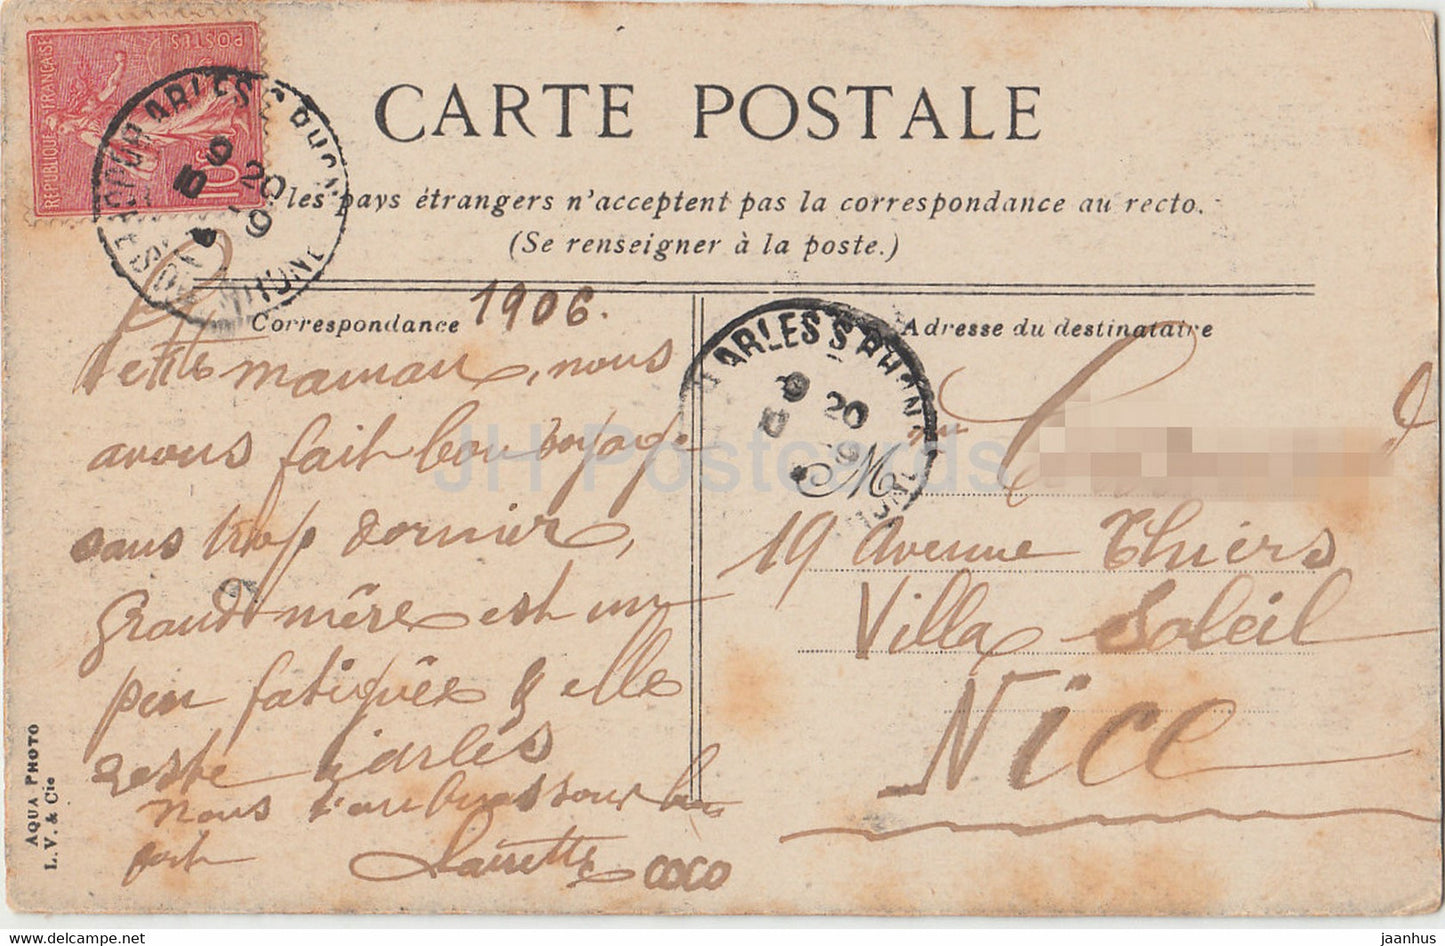 POSTES
REPUBLIQUE FRANÇAISE
10c
ARLES S RHONE
9
20
9
CARTE POSTALE
les pays étrangers n'acceptent pas la correspondance au recto.
(Se renseigner à la poste.)
Correspondance
1906.
Petite maman, nous
avons fait bon voyage
sans trop dormir,
Grand mère est un
peu fatiguée & elle
reste à arles
nous t'embrassons bien
fort
Laurette coco
Adresse du destinataire
ARLES S RHONE
9
20
M
19 Avenue Thiers
Villa Soleil
Nice
AQUA PHOTO
L. V. & Cie
JH Postcards
www.delcampe.net
jaanhus